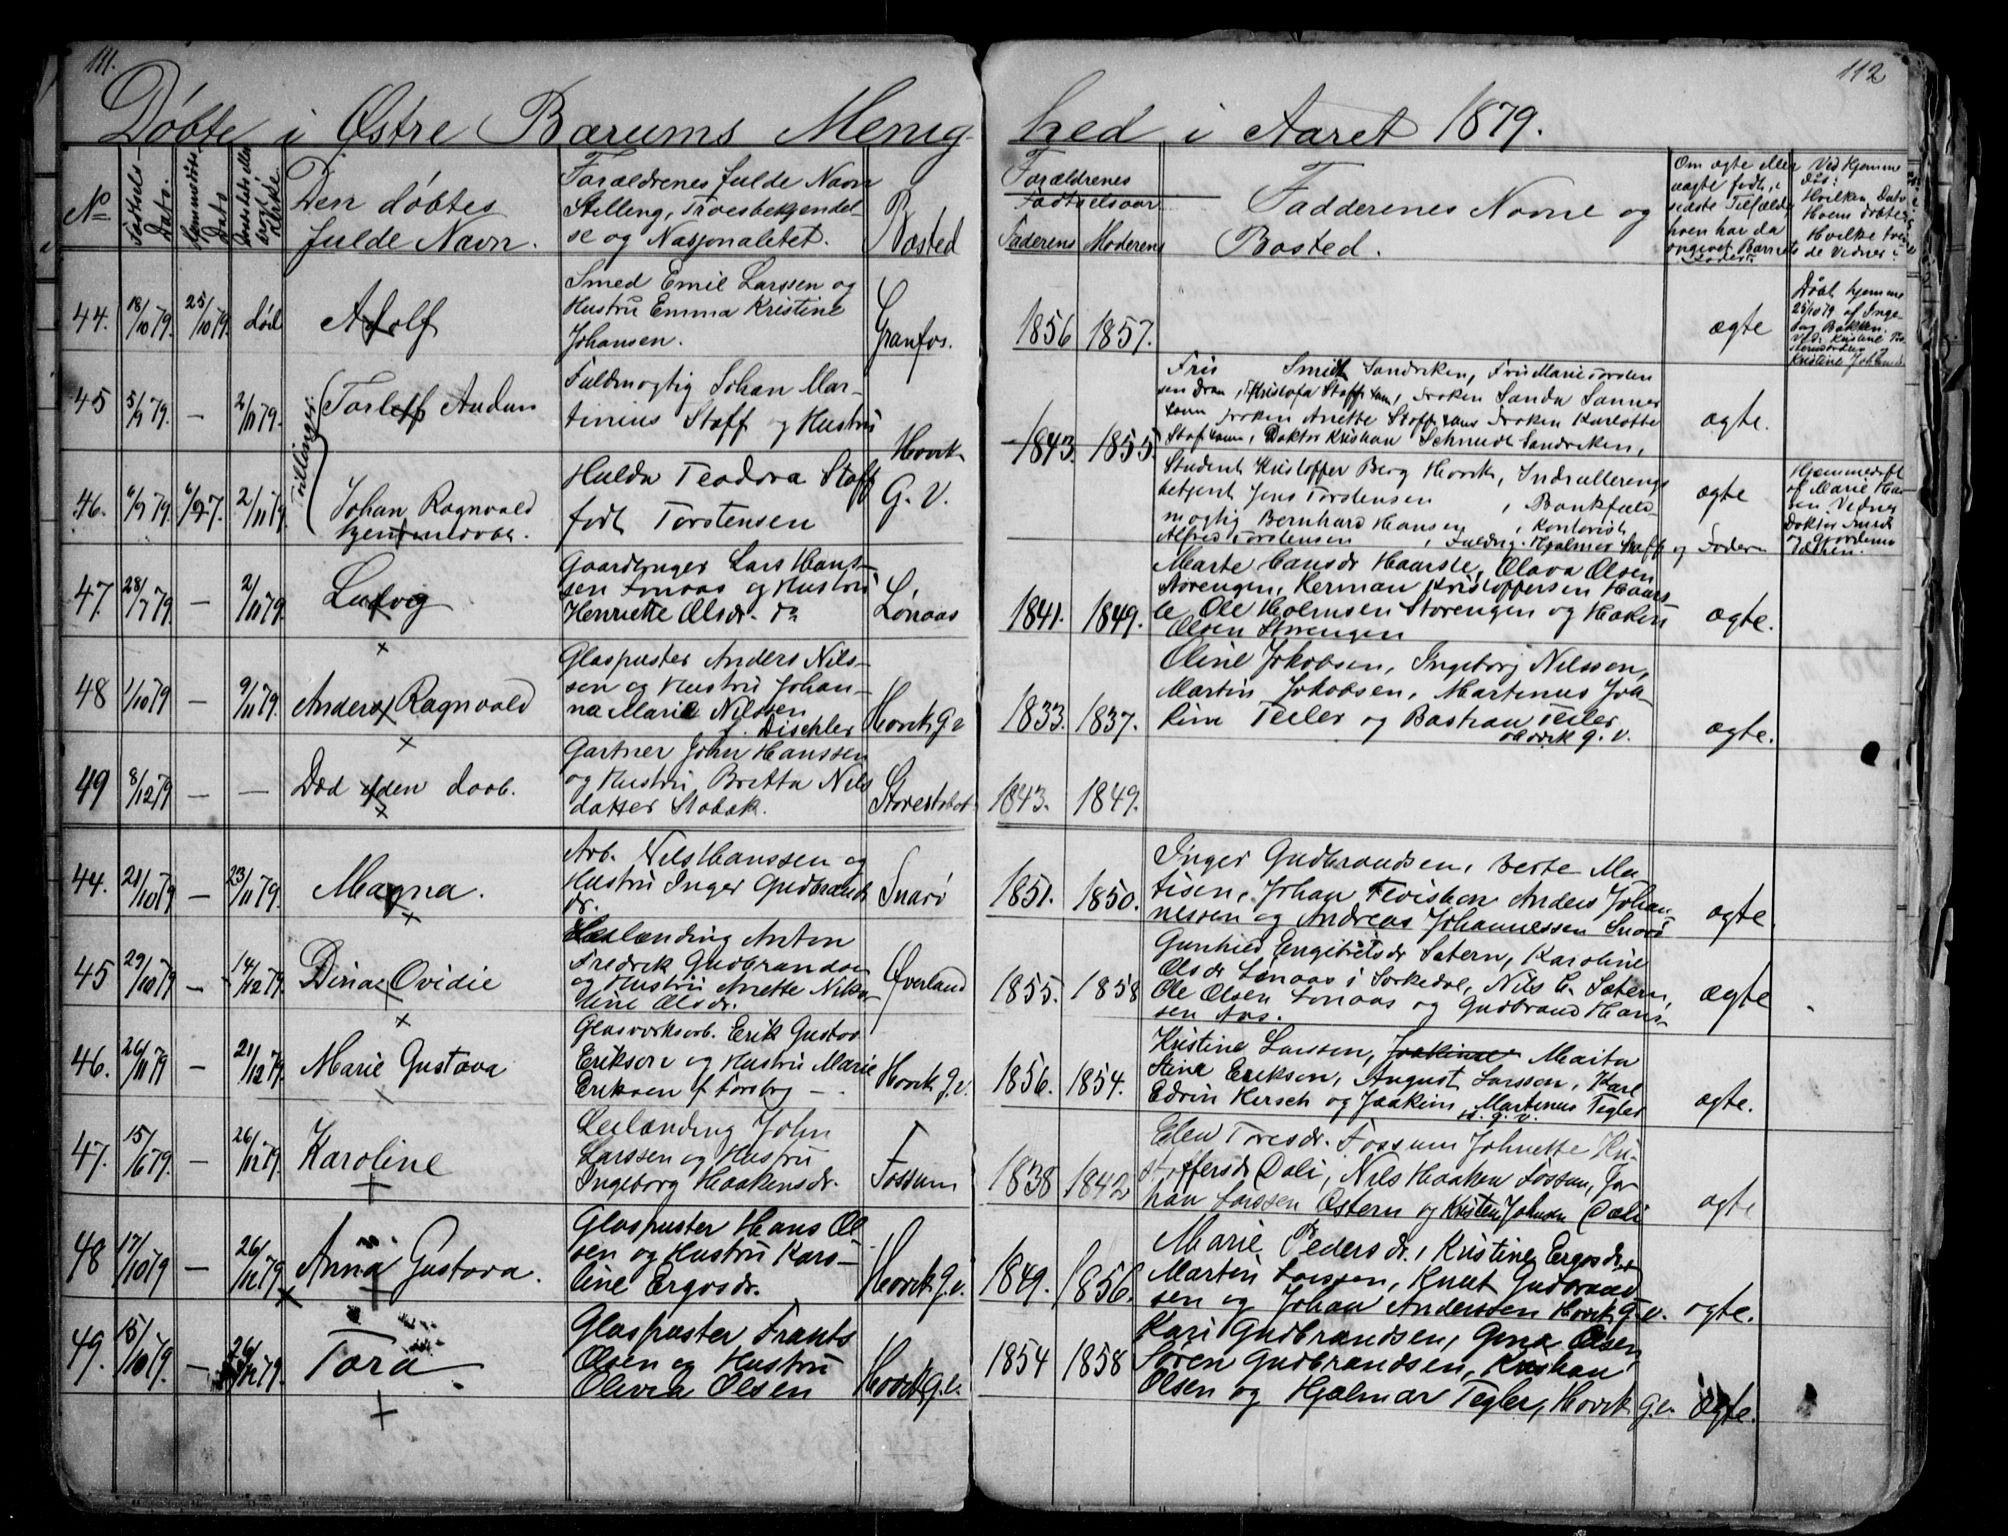 111.
112
Døbte i Østre Bærums Menig-
hed i Aaret 1879.
No
Fødsels-
Dato.
Hjemmedøbt
Dato
Kirke.
Den døbtes
fulde Navn.
Forældrenes fulde Navn
Stilling, Troesbekjendel-
se og Nasjonalitet.
Bosted
Forældrenes
Fødselsaar
Faderens
Moderens
Faddernes Navne og
Bosted.
Om ægte eller
uægte født, i
sidste Tilfælde
hvem har da
angivet Barnets
Fader?
Ved Hjemme
Daab:
Hvilken Dato
Hvem døbte
Hvilke vare
de Vidner?
44. 18/10 79. 25/10 79. død Adolf
Smed Emil Larssen og
Hustru Emma Kristine
Johansen.
Granfos.
1856 1857.
ægte
Døbt hjemme
25/10 79 af Inge-
borg Bakken.
45 5/9 79. — 2/11 79.
Tvillinger.
Torleff Audun
Fuldmægtig Johan Mar-
tinius Staff og Hustru
1843. 1855.
ægte.
46. 6/9 79. 2/11 79.
Johan Ragnvald
hjemmedøbt.
Hulda Teodora Staff
født Torstensen
Høvik
G. V.
Student Kristoffer Berg Høvik, Indrullerings
betjent Jens Torstensen , Bankfuld-
mægtig Bernhard Hansen , Kontorist
Alfred Torstensen , Fuldm. Hjalmar Staff og Faderen
ægte
Hjemmedøbt
af Marie Han-
sen. Vidner
Doktor Smidt
47. 28/7 79 — 2/11 79. Ludvig
Gaardbruger Lars Hans-
sen Lønaas og Hustru
Henriette Olsdr.
Lønaas
1841. 1849.
Marte Hansdr Haarsle, Olava Olsen
Storengen, Herman Kristoffersen Haars-
le Ole Holmsen Storengen og Hakon
Olsen Storengen
ægte.
48 1/10 79 — 9/11 79. Anders Ragnvald
Glaspuster Anders Nils-
sen og Hustru Johan-
na Marie Nilssen
f. Dischler
Høvik g. v
1833. 1837.
Oline Jokobsen, Ingeborg Nilssen,
Martin Jokobsen, Martinus Joa-
kim Teiler og Bastian Teiler
Høvik g. v.
ægte.
49 8/12 79 — — Død uden daab.
Gartner John Hanssen
og Hustru Britta Nils
datter Stabæk.
Store Stabæk
1843. 1849.
44. 21/10 79 — 23/11 79. Magna.
Arb. Nils Hanssen og
Hustru Inger Gudbrands
dr.
Snarø
1851. 1850.
Inger Gudbrandsen, Berte Ma-
tisen, Johan Anders Johan-
nessen og Andreas Johannessen Snarø
ægte.
45 29/10 79 — 14/12 79. Dina Ovidie
Leilænding Anton
Fredrik Gudbrandsen
og Hustru Anette Niko-
line Olsdr.
Øverland
1855. 1858
Gunhild Engebretsdr Sætern, Karoline
Olsdr Lønaas i Sørkedal, Nils C. Sætern,
Ole Olsen Lønaas og Gudbrand Hans-
sen Aas.
ægte
46. 26/11 79 — 21/12 79. Marie Gustava
Glasværksarb. Erik Gustav
Eriksen og Hustru Marie
Eriksen f. Forsberg —
Høvik g. v.
1856. 1854.
Kristine Larssen, Joakime Maria
Stine Eriksen, August Larssen, Karl
Edvin Hersch og Joakim Martenus Tegler
H. g. v.
ægte.
47. 15/6 79. — 26/12 79. Karoline
Leilænding John
Larssen og Hustru
Ingeborg Haakensdr.
Fossum
1838 1842
Elen Toresdr. Fossum Johnette Kri-
stoffersdr Dæli, Nils Haaken Fossum, Jo-
han Larssen Østern og Kristen Johnsen Dæli
ægte
48 17/10 79 — 26/12 79 Anna Gustava.
Glaspuster Hans Ol-
sen og Hustru Karo-
line Ergosdr.
Høvik g. v.
1849. 1856.
Marie Pedersdr., Kristine Ergosdr,
Martin Larssen, Knut Gudbrand
sen og Johan Anderssen Høvik g. v.
ægte.
49. 15/10 79. — 26/12 79. Tora
Glaspuster Frants
Olsen og Hustru
Olivia Olsen
Høvik g. v.
1854 1858
Kari Gudbrandsen, Gina Olsen,
Søren Gudbrandsen, Kristian
Olsen og Hjalmar Tegler, Høvik g. v.
ægte.